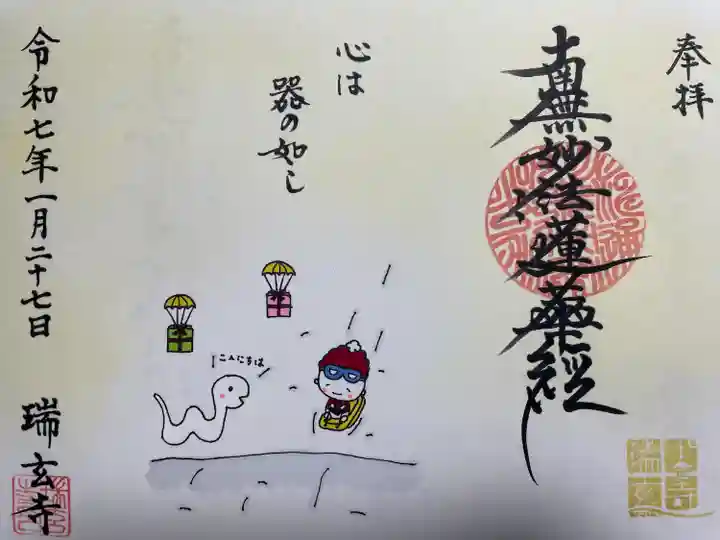 奉拝
南無妙法蓮華経
心は
器の如し
こんにちは
令和七年一月二十七日
瑞玄寺